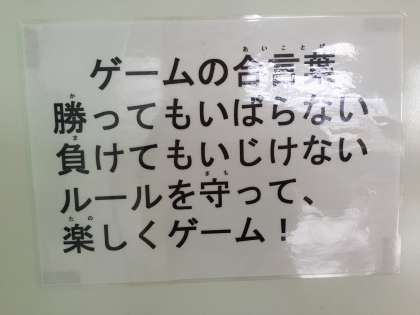 ゲームの合言葉
勝ってもいばらない
負けてもいじけない
ルールを守って、
楽しくゲーム！